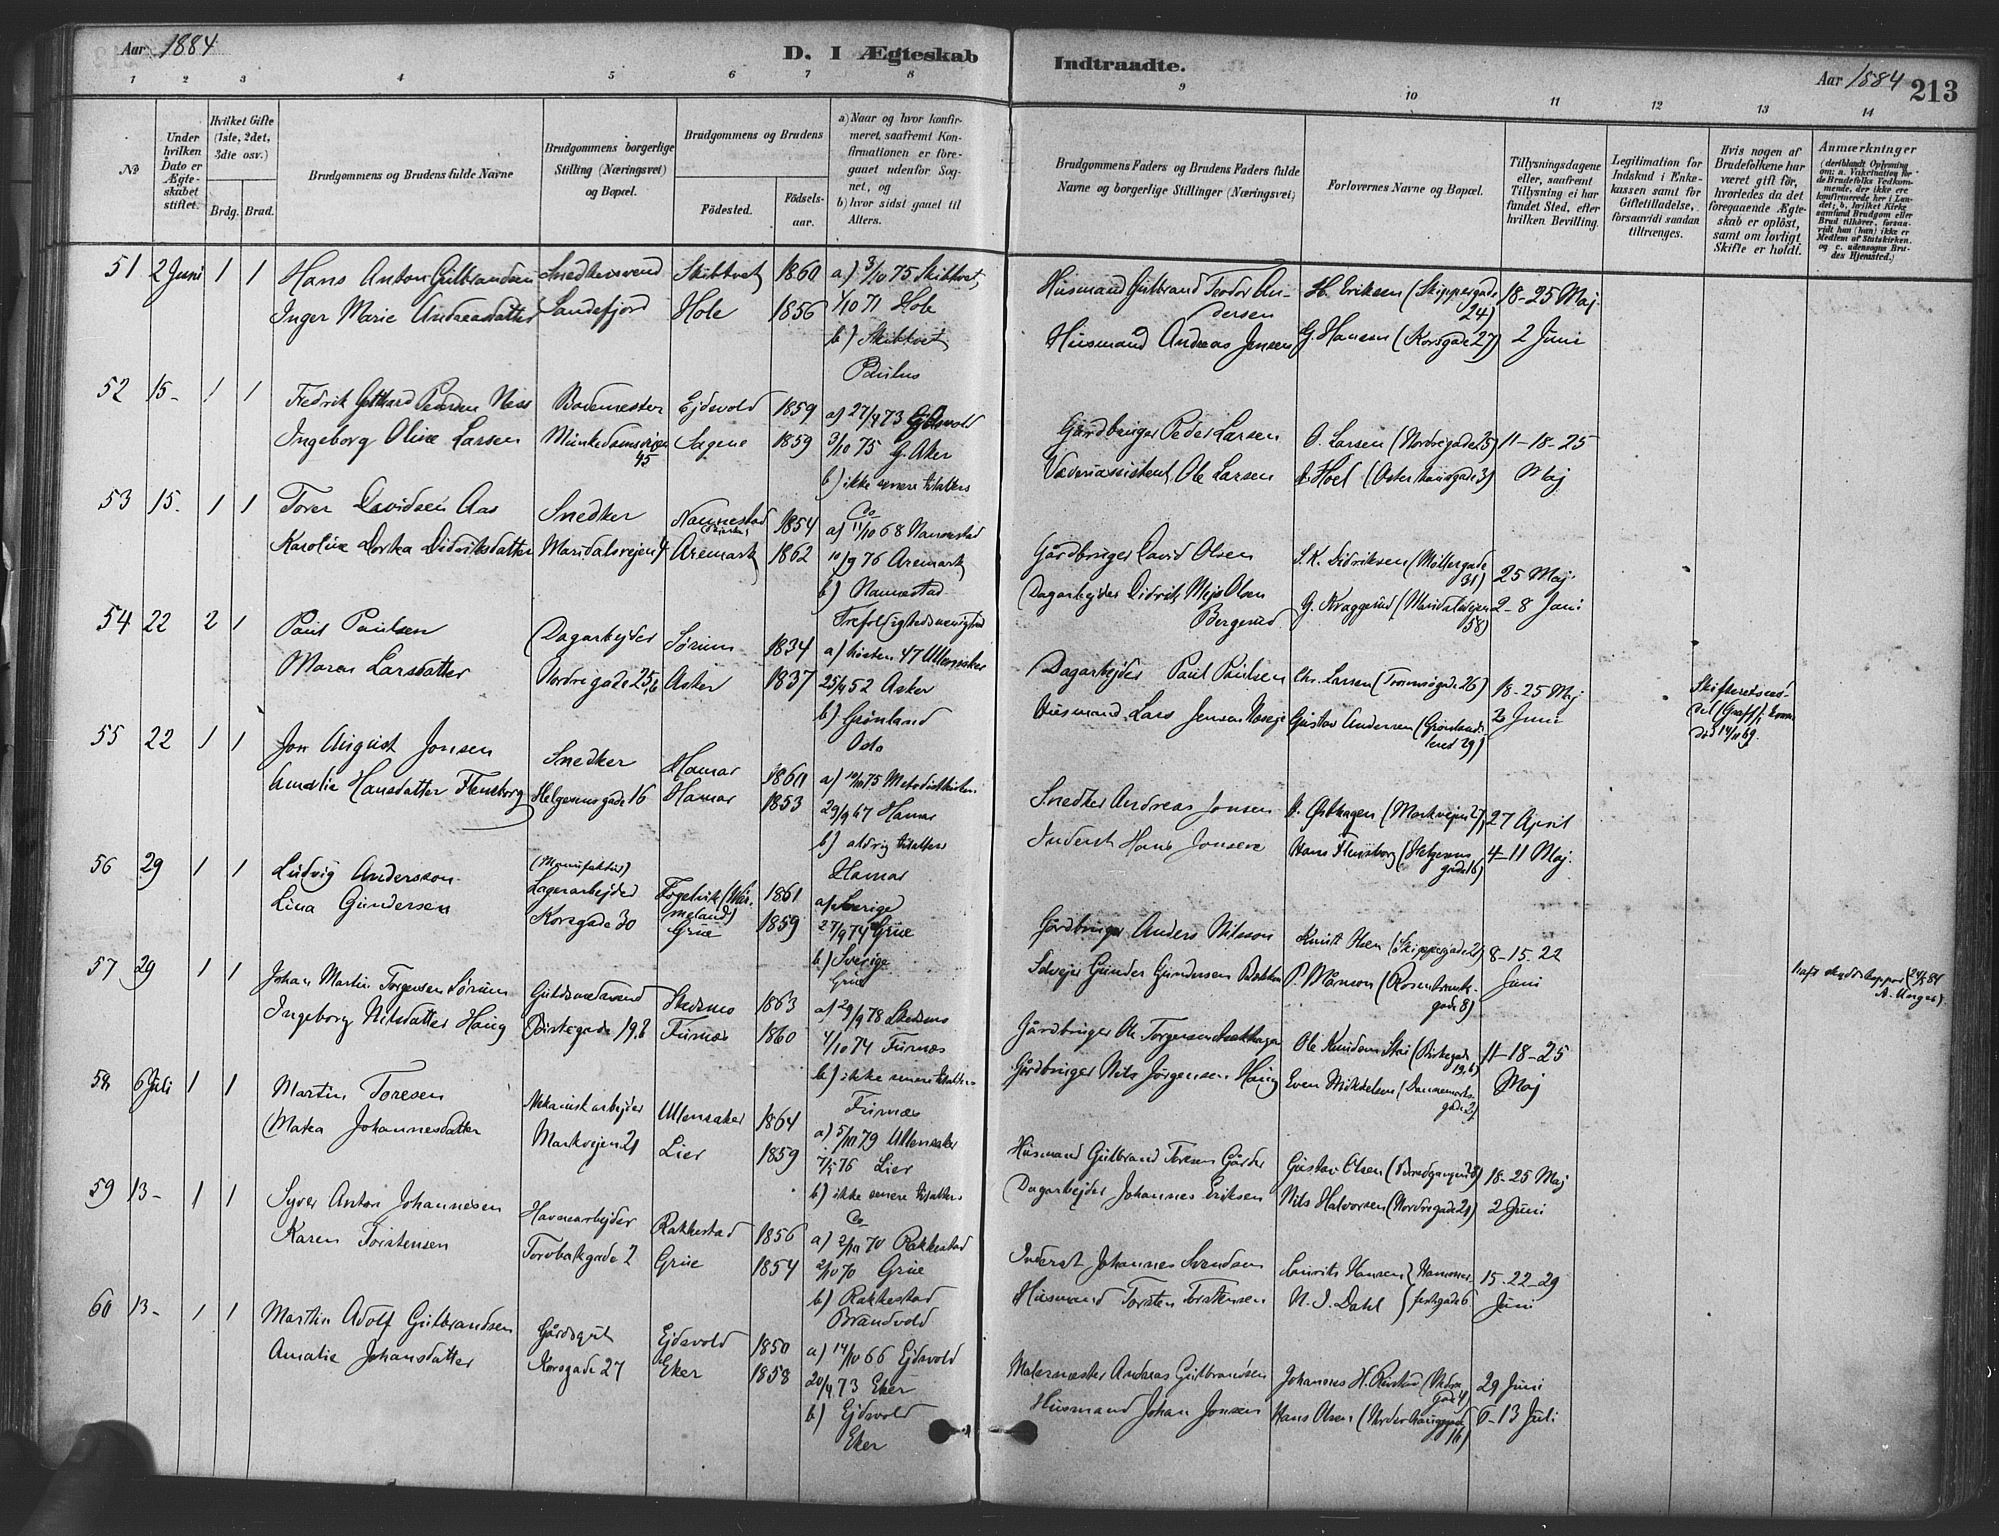 Aar 1884
D. I Ægteskab Indtraadte.
Aar 1884 213
1 2 3 4 5 6 7 8 9 10 11 12 13 14
No
Under hvilken Dato er Ægteskabet stiftet.
Hvilket Gifte (1ste, 2det, 3die osv.)
Brdg. Brud.
Brudgommens og Brudens fulde Navne
Brudgommens borgerlige Stilling (Næringsvei) og Bopæl.
Brudgommens og Brudens
Fødested.
Fødselsaar.
a) Naar og hvor konfirmeret, saafremt Konfirmationen er foregaaet udenfor Sognet, og
b) hvor sidst gaaet til Alters.
Brudgommens Faders og Brudens Faders fulde Navne og borgerlige Stillinger (Næringsvei)
Forlovernes Navne og Bopæl.
Tillysningsdagene eller, saafremt Tillysning ei har fundet Sted, efter hvilken Bevilling.
Legitimation for Indskud i Enkekassen samt for Giftetilladelse, forsaavidt saadan tiltrænges.
Hvis nogen af Brudefolkene har været gift før, hvorledes da det foregaaende Ægteskab er opløst, samt om lovligt Skifte er holdt.
Anmærkninger
51 2 Juni 1 1 Hans Anton Gulbrandsen Snedkersvend Skibtvet 1860 a) 3/10 75 Skibtvet
Inger Marie Andreasdatter Sandefjord Hole 1856 1/10 71 Hole
b) Skibtvet
Paulus
Husmand Gulbrand Teodor Andersen H. Eriksen (Skippergade 24) 18-25 Maj
Husmand Andreas Jensen G. Hansen (Korsgade 27) 2 Juni
52 15- 1 1 Fredrik Gotthard Pedersen Ness Bødemester Ejdsvold 1859 a) 27/4 73 Ejdsvold
Ingeborg Oline Larsen Munkedamsvejen 45 Sagene 1859 3/10 75 G. Aker
b) ikke senere tilalters
Co
Gårdbruger Peder Larsen O. Larsen (Nordregade 25) 11-18-25
Væveriassistent Ole Larsen A. Hoel (Osterhausgade 3) Maj
53 15. 1 1 Torer Davidsen Aas Snedker Nannestad 1854 a) 11/10 68 Nannestad
Karoline Dortea Didriksdatter Maridalsvejen 4 Aremark 1862 10/9 76 Aremark
b) Nannestad
Trefoldighedsmenighed
Gårdbruger David Olsen S. K. Didriksen (Møllergade 31) 25 Maj
Dagarbejder Didrik Olsen Bergerud G. Kraggerud (Maridalsvejen 58) 2-8 Juni
54 22 2 1 Paul Paulsen Dagarbejder Sørum 1834 a) høsten 47 Ullensaker
Maren Larsdatter Nordregade 25 b Asker 1837 25/4 52 Asker
b) Grønland
Oslo
Dagarbejder Paul Paulsen Chr. Larsen (Tromsøgade 26) 18-25 Maj
Husmand Lars Jensen Gustav Andersen (Grønlandsleret 29) 2 Juni
55 22 1 1 Jon August Jonsen Snedker Hamar 1860 a) 10/10 75 Metodistkirken
Amalie Hansdatter Flensborg Helgesensgade 16 Hamar 1853 29/9 67 Hamar
b) aldrig tilalters
Hamar
Snedker Andreas Jonsen A. Østhagen (Markvejen 27) 27 April
Inderst Hans Jonsen Hans Flensborg (Helgesensgade 16) 4-11 Maj.
56 29 1 1 Ludvig Andersson (Manufaktur) Lagerarbejder Fogelvik (Wermeland) 1861 a) Sverige
Lina Gundersen Korsgade 30 Grue 1859 27/9 74 Grue
b) Sverige
Grue
Gårdbruger Anders Nilsson Knut Olsen (Skippergade 2) 8-15-22
Selvejer Gunder Gundersen Bakken P. Månson (Rosenkrantzgade 8) Juni
57 29 1 1 Johan Martin Torgersen Sørum Guldsmedsvend Skedsmo 1863 a) 29/9 78 Skedsmo
Ingeborg Nilsdatter Haug Birkegade 19 b Furnæs 1860 4/10 74 Furnæs
b) ikke senere tilalters
Furnæs
Gårdbruger Ole Torgersen Ole Knudsen Skei (Birkegade 19 b) 11-18-25
Gårdbruger Nils Jørgensen Haug Even Mikkelsen (Dannemarksgade 2) Maj
58 6 Juli 1 1 Martin Toresen Mekanisk arbejder Ullensaker 1864 a) 5/10 79 Ullensaker
Matea Johannesdatter Markvejen 21 Lier 1859 7/5 76 Lier
b) ikke senere tilalters
Co
Husmand Gulbrand Toresen Gårder Gustav Olsen (Bredgangen 8) 18-25 Maj
Dagarbejder Johannes Eriksen Nils Halvorsen (Nordregade 21) 2 Juni
59 13- 1 1 Syver Anton Johannesen Havnearbejder Rakkestad 1856 a) 2/10 70 Rakkestad
Karen Torstensen Torvbakgade 2 Grue 1854 2/10 70 Grue
b) Rakkestad
Brandvold
Inderst Johannes Svendsen Laurits Hansen (Hammerfestgade 6 15-22-29
Husmand Torsten Torstensen N. I. Dahl Juni
60 13- 1 1 Martin Adolf Gulbrandsen Gårdsgut Ejdsvold 1850 a) 14/10 66 Ejdsvold
Amalie Johansdatter Korsgade 27 Eker 1858 20/4 73 Eker
b) Ejdsvold
Eker
Malermester Andreas Gulbrandsen Johannes H. 29 Juni
Husmand Johan Jonsen Hans Olsen 16) 6-13 Juli